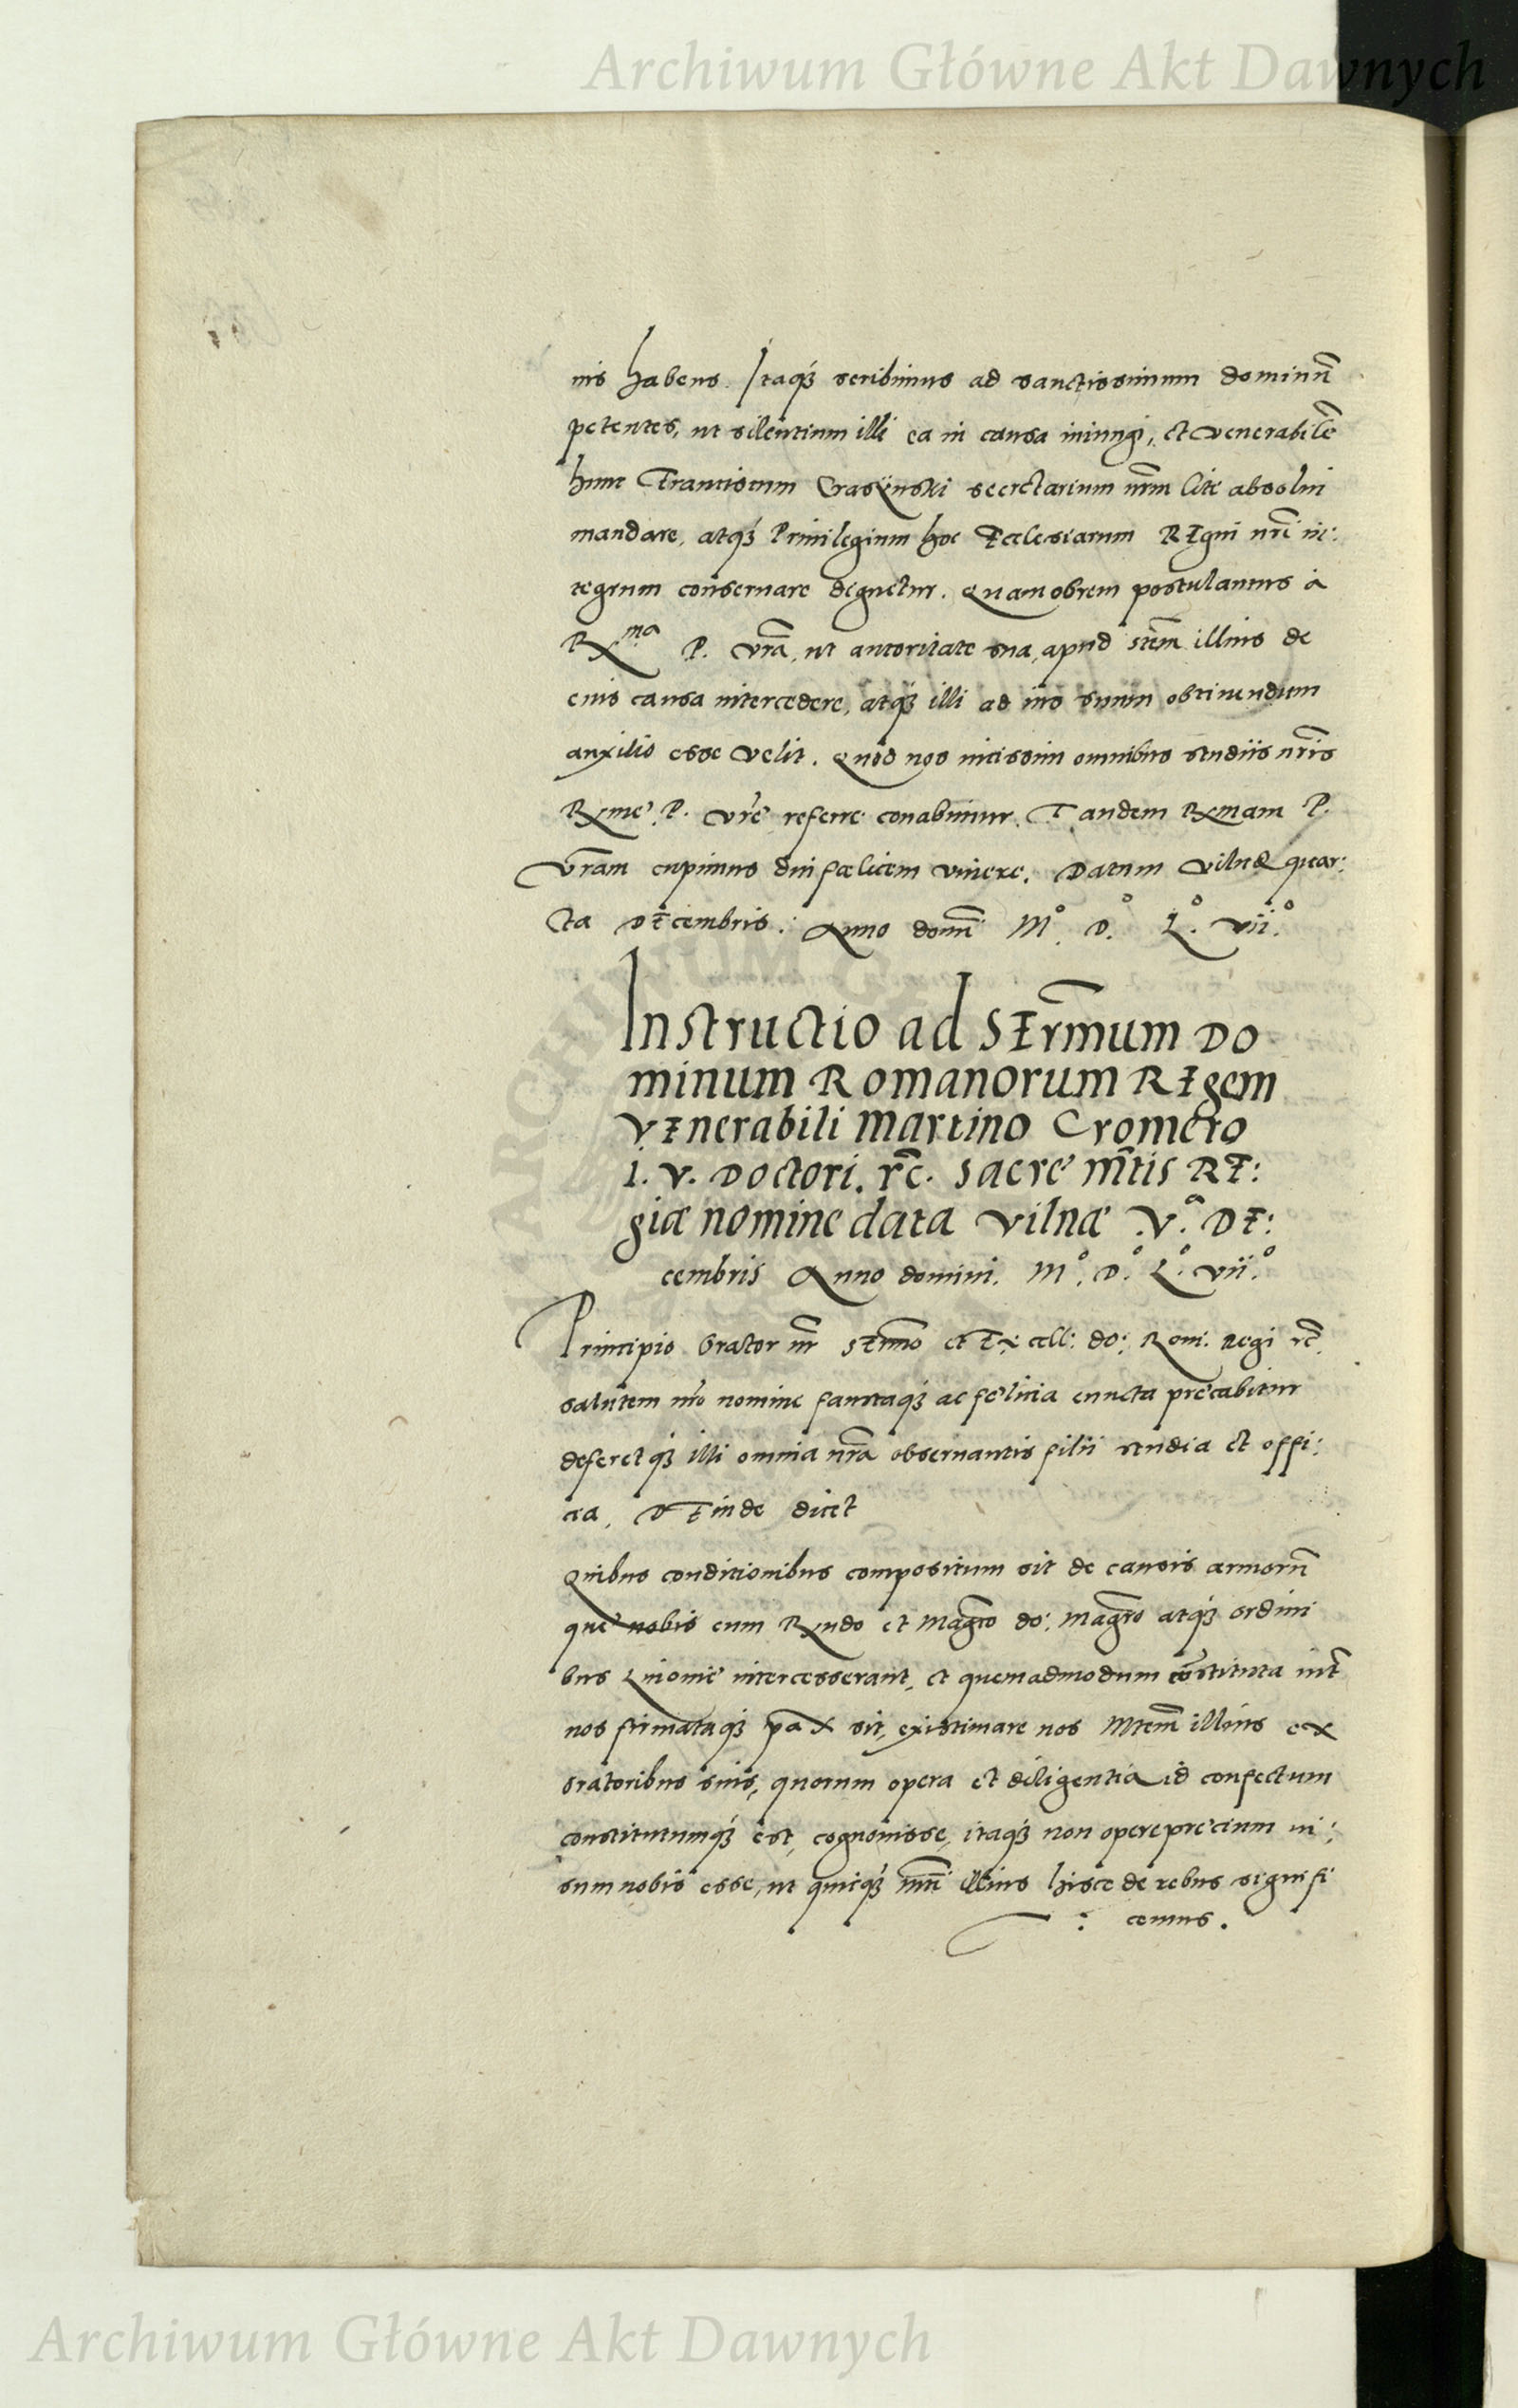 Archiwum Główne Akt Dawnych
nis habens. Itaq̃ scribimus ad sanctissimum dominũ
petentes, ut silentium illi ea in causa iniungi, et venerabilẽ
hunc Franciscum Crasÿnski secretarium nr̃m lite absolui
mandare, atq̃ Priuilegium hoc Ecclesiarum REgni nr̃i in:
tegrum conseruare dignetur. Quamobrem postulamus à
Rma P. vr̃a, ut autoritate sua, apud Stem̃ illius de
eius causa intercedere, atq̃ illi ad ius suum obtinendum
auxilio esse velit. Quod nos vicissim omnibus studiis nr̃is
Rme P. vr̃e referre conabimur. Tandem Rmam P.
Vr̃am cupimus diu fœlicem viuere. Datum Vilnę quar:
ta DEcembris: Anno domĩ Mº. D.º L.º vii.º
Instructio ad SEr̃mum Do
minum Romanorum REgem
VEnerabili Martino Cromero
I. V. Doctori. rc̃. Sacre Mt̃is RE:
giæ nomine data Vilnæ .V.ª DE:
cembris Anno domini. Mº. D.º L.º vii.º
Principio Orator nr̃ SEr̃mo et Excell: do: Rom. Regi rc̃.
salutem nr̃o nomine faustaq̃ ac felicia cuncta precabitur
deferetq̃ illi omnia nr̃a obseruantis filii studia et offi:
cia, DEinde dicet
Quibus conditionibus compositum sit de causis armorũ
que nobis cum Rndo et Magco do: Magr̃o atq̃ ordini
bus Liuonie intercesserant, et quemadmodum cõnstituta int̃
nos firmataq̃ pax sit, existimare nos Mtem̃ illius ex
oratoribus suis, quorum opera et diligentia id confectum
constitutumq̃ est, cognouisse, itaq̃ non opereprecium vi:
sum nobis esse, ut quicq̃ Mti illius hisce de rebus signifi
: cemus.
Archiwum Główne Akt Dawnych